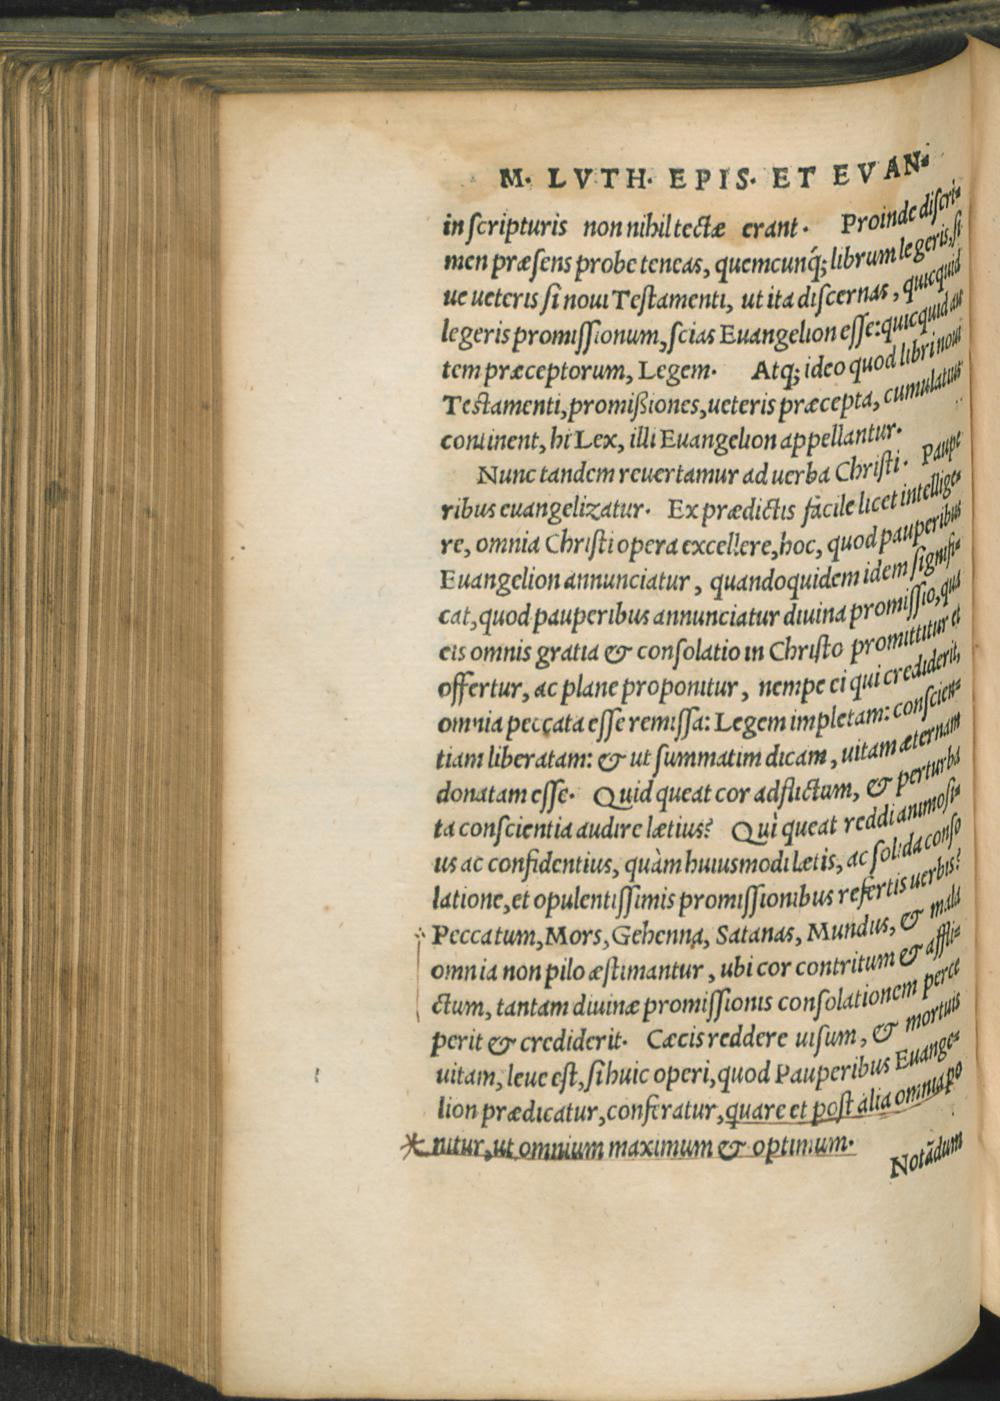 M. LVTH. EPIS. ET EVAN-
in scripturis non nihil tectæ erant. Proinde discri-
men præsens probe teneas, quemcunq́; librum legeris, si
ue ueteris si noui Testamenti, ut ita discernas, quicquid
legeris promissionum, scias Euangelion esse: quicquid au
tem præceptorum, Legem. Atq; ideo quod libri noui
Testamenti, promißiones, ueteris præcepta, cumulatius
continent, hi Lex, illi Euangelion appellantur.
Nunc tandem reuertamur ad uerba Christi. Paupe
ribus euangelizatur. Ex prædictis facile licet intellige-
re, omnia Christi opera excellere, hoc, quod pauperibus
Euangelion annunciatur, quandoquidem idem signifi-
cat, quod pauperibus annunciatur diuina promissio, qua
eis omnis gratia & consolatio in Christo promittitur et
offertur, ac plane proponitur, nempe ei qui crediderit,
omnia peccata esse remissa: Legem impletam: conscien-
tiam liberatam: & ut summatim dicam, uitam æternam
donatam esse. Quid queat cor adflictum, & perturba
ta conscientia audire lætius? Quì queat reddi animosi-
us ac confidentius, quàm huiusmodi lætis, ac solida conso
latione, et opulentissimis promissionibus refertis uerbis?
Peccatum, Mors, Gehenna, Satanas, Mundus, & mala
omnia non pilo æstimantur, ubi cor contritum & affli-
ctum, tantam diuinæ promissionis consolationem perce
perit & crediderit. Cæcis reddere uisum, & mortuis
uitam, leue est, si huic operi, quod Pauperibus Euange-
lion prædicatur, conferatur, quare et post alia omnia po
nitur, ut omnium maximum & optimum.
Notãdum